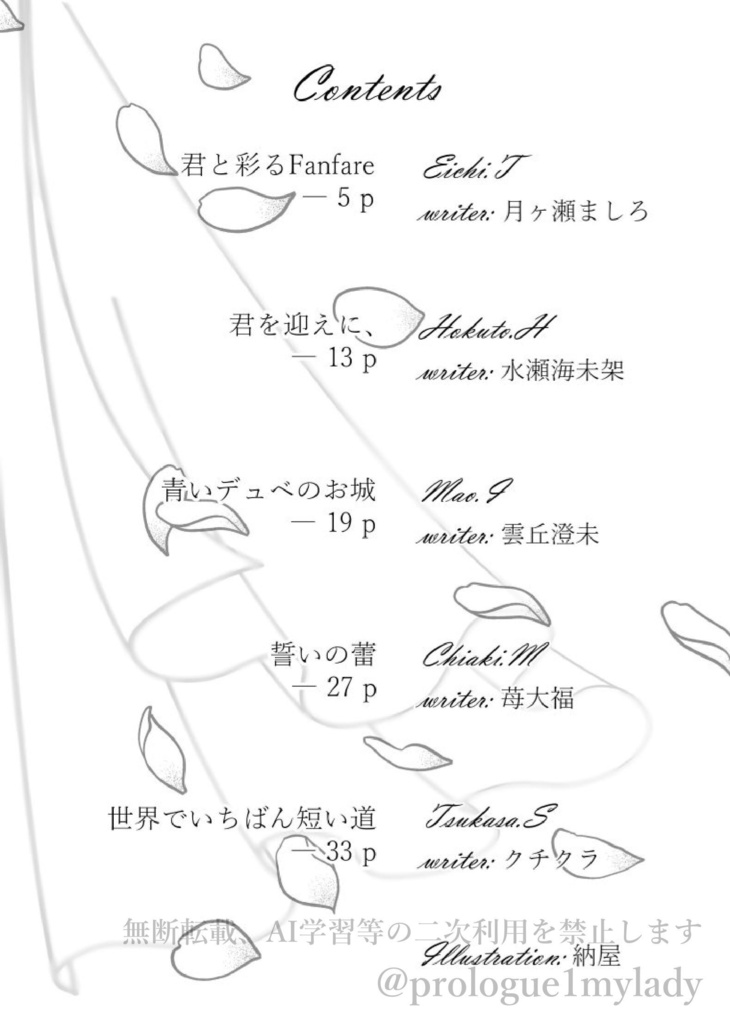 Contents
君と彩るFanfare
— 5 p
Eichi.T
writer: 月ヶ瀬ましろ
君を迎えに、
— 13 p
Hokuto.H
writer: 水瀬海未架
青いデュベのお城
— 19 p
Mao.I
writer: 雲丘澄未
誓いの蕾
— 27 p
Chiaki.M
writer: 苺大福
世界でいちばん短い道
— 33 p
Tsukasa.S
writer: クチクラ
無断転載、AI学習等の二次利用を禁止します
Illustration: 納屋
@prologue1mylady